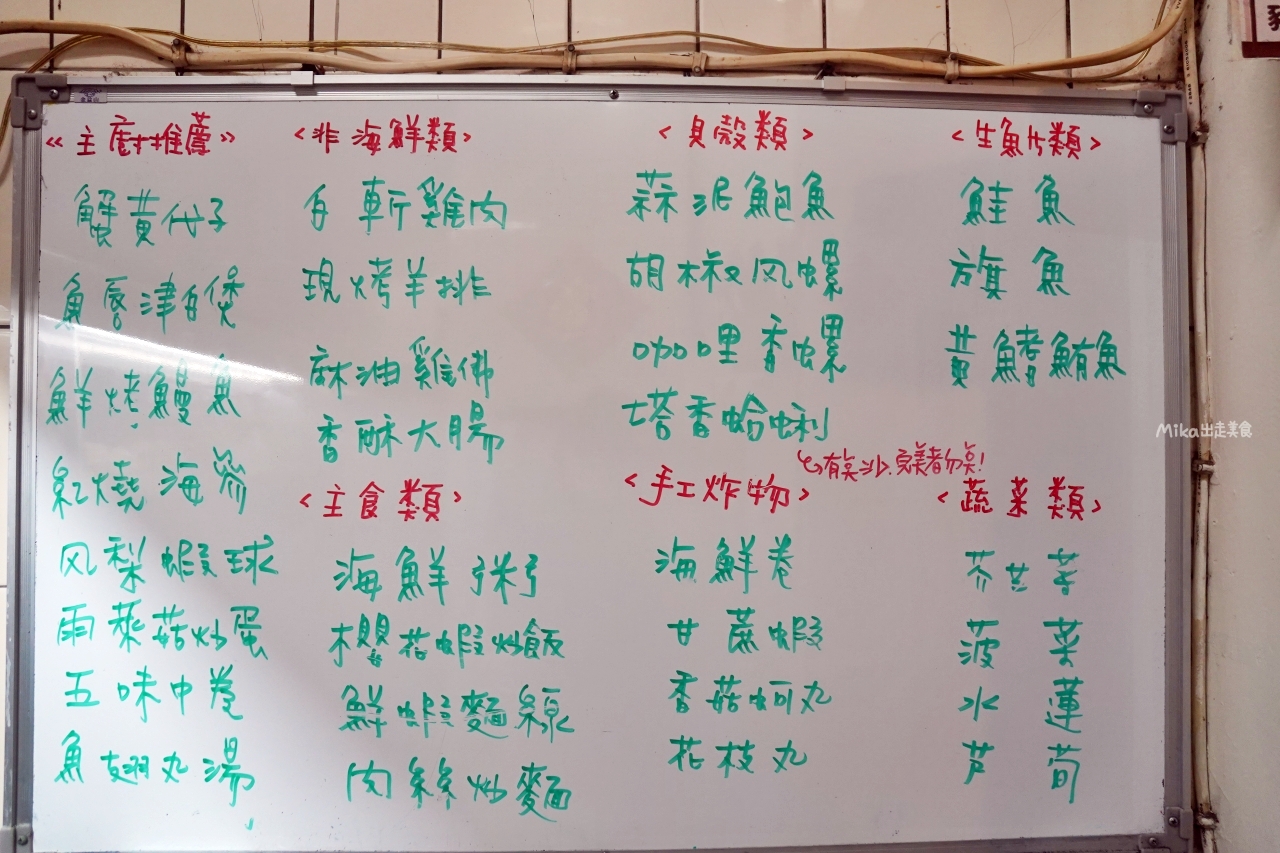 《主廚推薦》
蟹黃代子
魚唇津白煲
鮮烤鰻魚
紅燒海參
风梨蝦球
雨來菇炒蛋
五味中卷
魚翅丸湯
〈非海鮮類〉
白斬雞肉
現烤羊排
麻油雞佛
香酥大腸
〈主食類〉
海鮮粥
櫻花蝦炒飯
鮮蝦麵線
肉絲炒麵
〈貝殼類〉
蒜泥鮑魚
胡椒风螺
咖哩香螺
塔香蛤蜊
有真沙.完美者勿点!
〈手工炸物〉
海鮮卷
甘蔗蝦
香菇蚵丸
花枝丸
〈生魚片類〉
鮭魚
旗魚
黃鰭鮪魚
〈蔬菜類〉
芥兰菜
菠菜
水蓮
芦筍
Mika出走美食